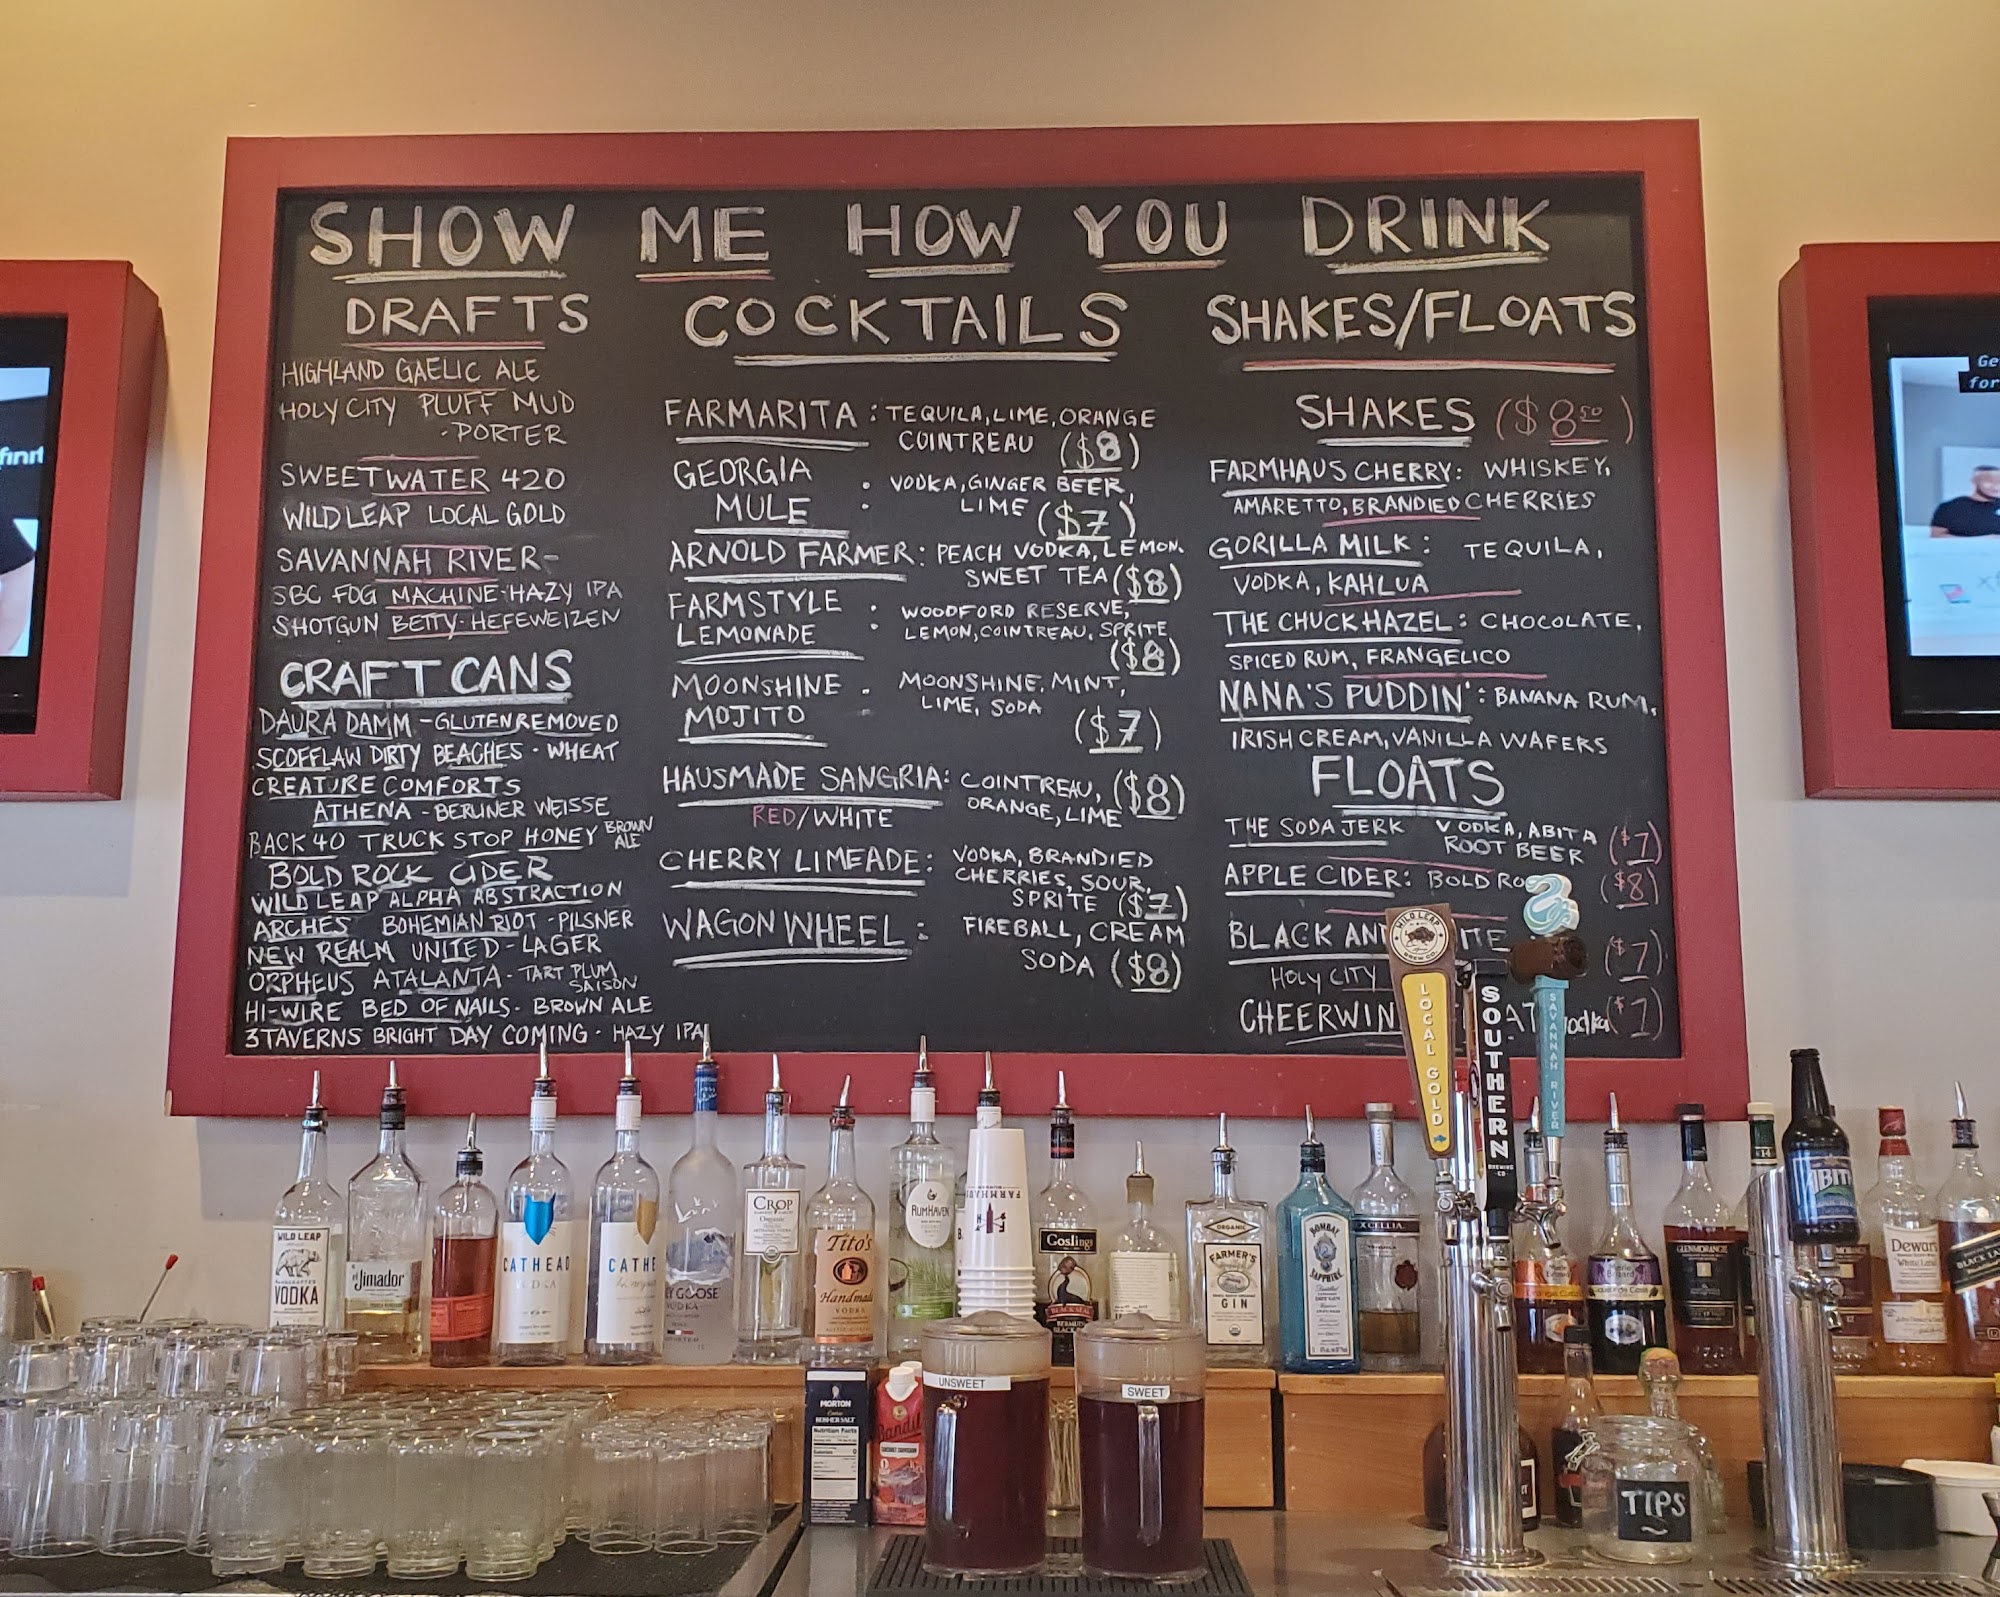 SHOW ME HOW YOU DRINK
DRAFTS
HIGHLAND GAELIC ALE
HOLY CITY PLUFF MUD
- PORTER
SWEETWATER 420
WILD LEAP LOCAL GOLD
SAVANNAH RIVER-
SBC FOG MACHINE-HAZY IPA
SHOTGUN BETTY-HEFEWEIZEN
CRAFT CANS
DAURA DAMM - GLUTEN REMOVED
SCOFFLAW DIRTY BEACHES - WHEAT
CREATURE COMFORTS
ATHENA - BERLINER WEISSE
BACK 40 TRUCK STOP HONEY BROWN ALE
BOLD ROCK CIDER
WILD LEAP ALPHA ABSTRACTION
ARCHES BOHEMIAN RIOT - PILSNER
NEW REALM UNITED - LAGER
ORPHEUS ATALANTA - TART PLUM SAISON
HI-WIRE BED OF NAILS - BROWN ALE
3 TAVERNS BRIGHT DAY COMING - HAZY IPA
COCKTAILS
FARMARITA : TEQUILA, LIME, ORANGE
COINTREAU ($8)
GEORGIA MULE : VODKA, GINGER BEER,
LIME ($7)
ARNOLD FARMER : PEACH VODKA, LEMON.
SWEET TEA ($8)
FARMSTYLE LEMONADE : WOODFORD RESERVE,
LEMON, COINTREAU, SPRITE
($8)
MOONSHINE MOJITO : MOONSHINE, MINT,
LIME, SODA
($7)
HAUSMADE SANGRIA: COINTREAU, ($8)
RED/WHITE ORANGE, LIME
CHERRY LIMEADE: VODKA, BRANDIED
CHERRIES, SOUR,
SPRITE ($7)
WAGON WHEEL : FIREBALL, CREAM
SODA ($8)
SHAKES/FLOATS
SHAKES ($8.50)
FARMHAUS CHERRY: WHISKEY,
AMARETTO, BRANDIED CHERRIES
GORILLA MILK : TEQUILA,
VODKA, KAHLUA
THE CHUCK HAZEL : CHOCOLATE,
SPICED RUM, FRANGELICO
NANA'S PUDDIN' : BANANA RUM,
IRISH CREAM, VANILLA WAFERS
FLOATS
THE SODA JERK VODKA, ABITA ($7)
ROOT BEER
APPLE CIDER: BOLD RO ($8)
BLACK AN TE ($7)
HOLY CITY
CHEERWIN AT vodka ($7)
WILD LEAP
BREW CO.
LOCAL GOLD
SOUTHERN
BREWING
CO
SAVANNAH RIVER
Get
for
finit
WILD LEAP
VODKA
el Jimador
CATHEAD
VODKA
CATHE
Y GOOSE
VODKA
CROP
Organic
Tito's
Handmade
VODKA
RUMHAVEN
FARMHAUS
Goslings
BLACK SEAL
BERMUDA
ORGANIC
FARMER'S
GIN
BOMBAY
SAPPHIRE
XCELLIA
GLENMORANGIE
ABITA
Dewar's
White Label
BLACK LA
12
MORTON
KOSHER SALT
Nutrition Facts
Bandit
CABERNET SAUVIGNON
UNSWEET
SWEET
TIPS